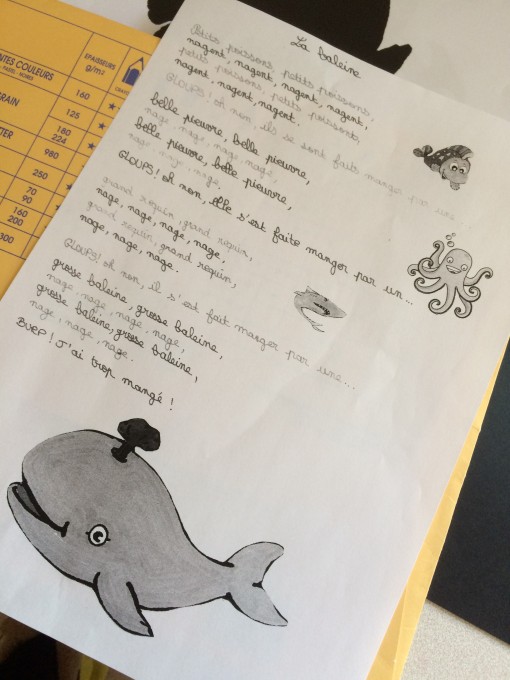 La baleine
Petits poissons, petits poissons,
nagent, nagent, nagent, nagent,
petits poissons, petits poissons,
nagent, nagent, nagent.
GLOUPS! oh non, ils se sont faits manger par une...
belle pieuvre, belle pieuvre,
nage, nage, nage, nage,
belle pieuvre, belle pieuvre,
nage, nage, nage,
GLOUPS! oh non, elle s'est faite manger par un...
grand requin, grand requin,
nage, nage, nage, nage,
grand requin, grand requin,
nage, nage, nage.
GLOUPS! oh non, il s'est fait manger par une...
grosse baleine, grosse baleine,
nage, nage, nage, nage,
grosse baleine, grosse baleine,
nage, nage, nage.
BUEP! J'ai trop mangé!
NTES COULEURS
EPAISSEURS
g/m2
160
RAIN
125
180
224
TER
980
250
70
90
160
200
300